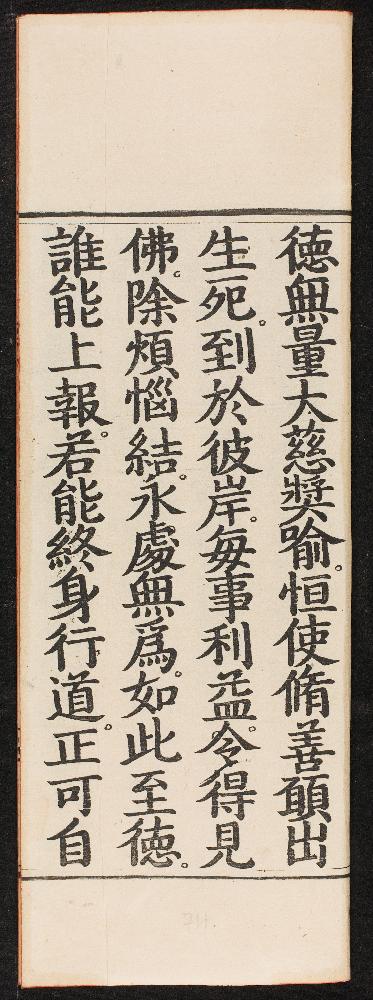 德無量大慈奬喻。恒使脩善願出
生死。到於彼岸。每事利益。令得見
佛。除煩惱結。永處無爲。如此至德。
誰能上報。若能終身行道。正可自